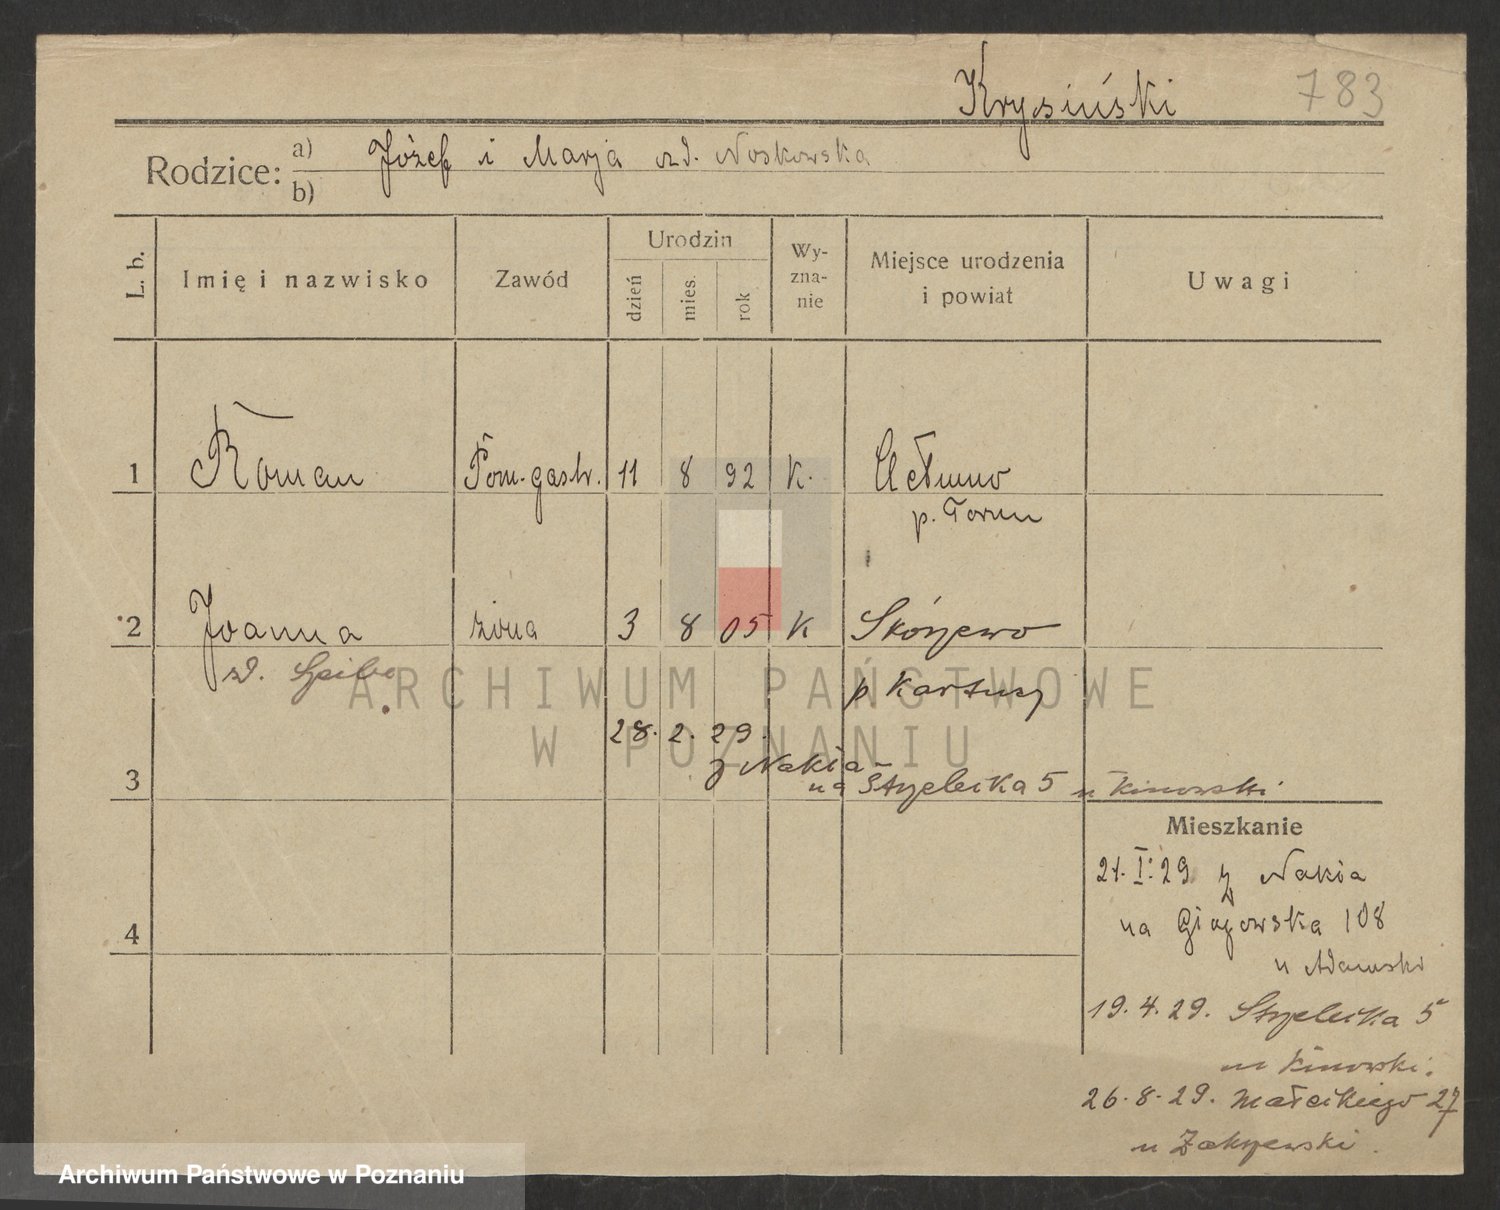 Krysiński 783
Rodzice: a) Józef i Marja zd. Noskowska
b)
L. b. Imię i nazwisko Zawód Urodzin dzień mies. rok Wy-zna-nie Miejsce urodzenia i powiat Uwagi
1 Roman Pom. gastr. 11 8 92 K.
p. Toruń
2 Joanna żona 3 8 05 K Skórzewo
zd. p Kartuzy
28. 2. 29.
z Nakła
3 na Strzelecka 5 u Kinowski
Mieszkanie
21. I. 29 z Nakła
4 na 108
u Adamski
19. 4. 29. Strzelecka 5
u Kinowski.
26. 8. 29. Małeckiego 27
u Zakrzewski.
ARCHIWUM PAŃSTWOWE
W POZNANIU
Archiwum Państwowe w Poznaniu